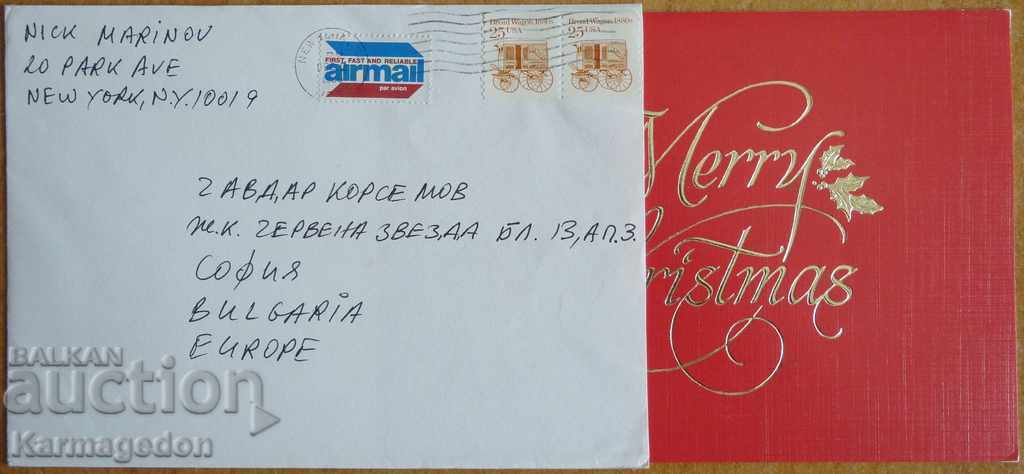 NICK MARINOV
20 PARK AVE
NEW YORK, N.Y. 10019
FIRST, FAST AND RELIABLE
airmail
par avion
Bread Wagon 1880s
25 USA
Bread Wagon 1880s
25 USA
ЧАВДАР КОРСЕМОВ
Ж.К. ЧЕРВЕНА ЗВЕЗДА БЛ. 13, АП.3.
СОФИЯ
BULGARIA
EUROPE
Merry
Christmas
BALKAN
auction
Karmagedon